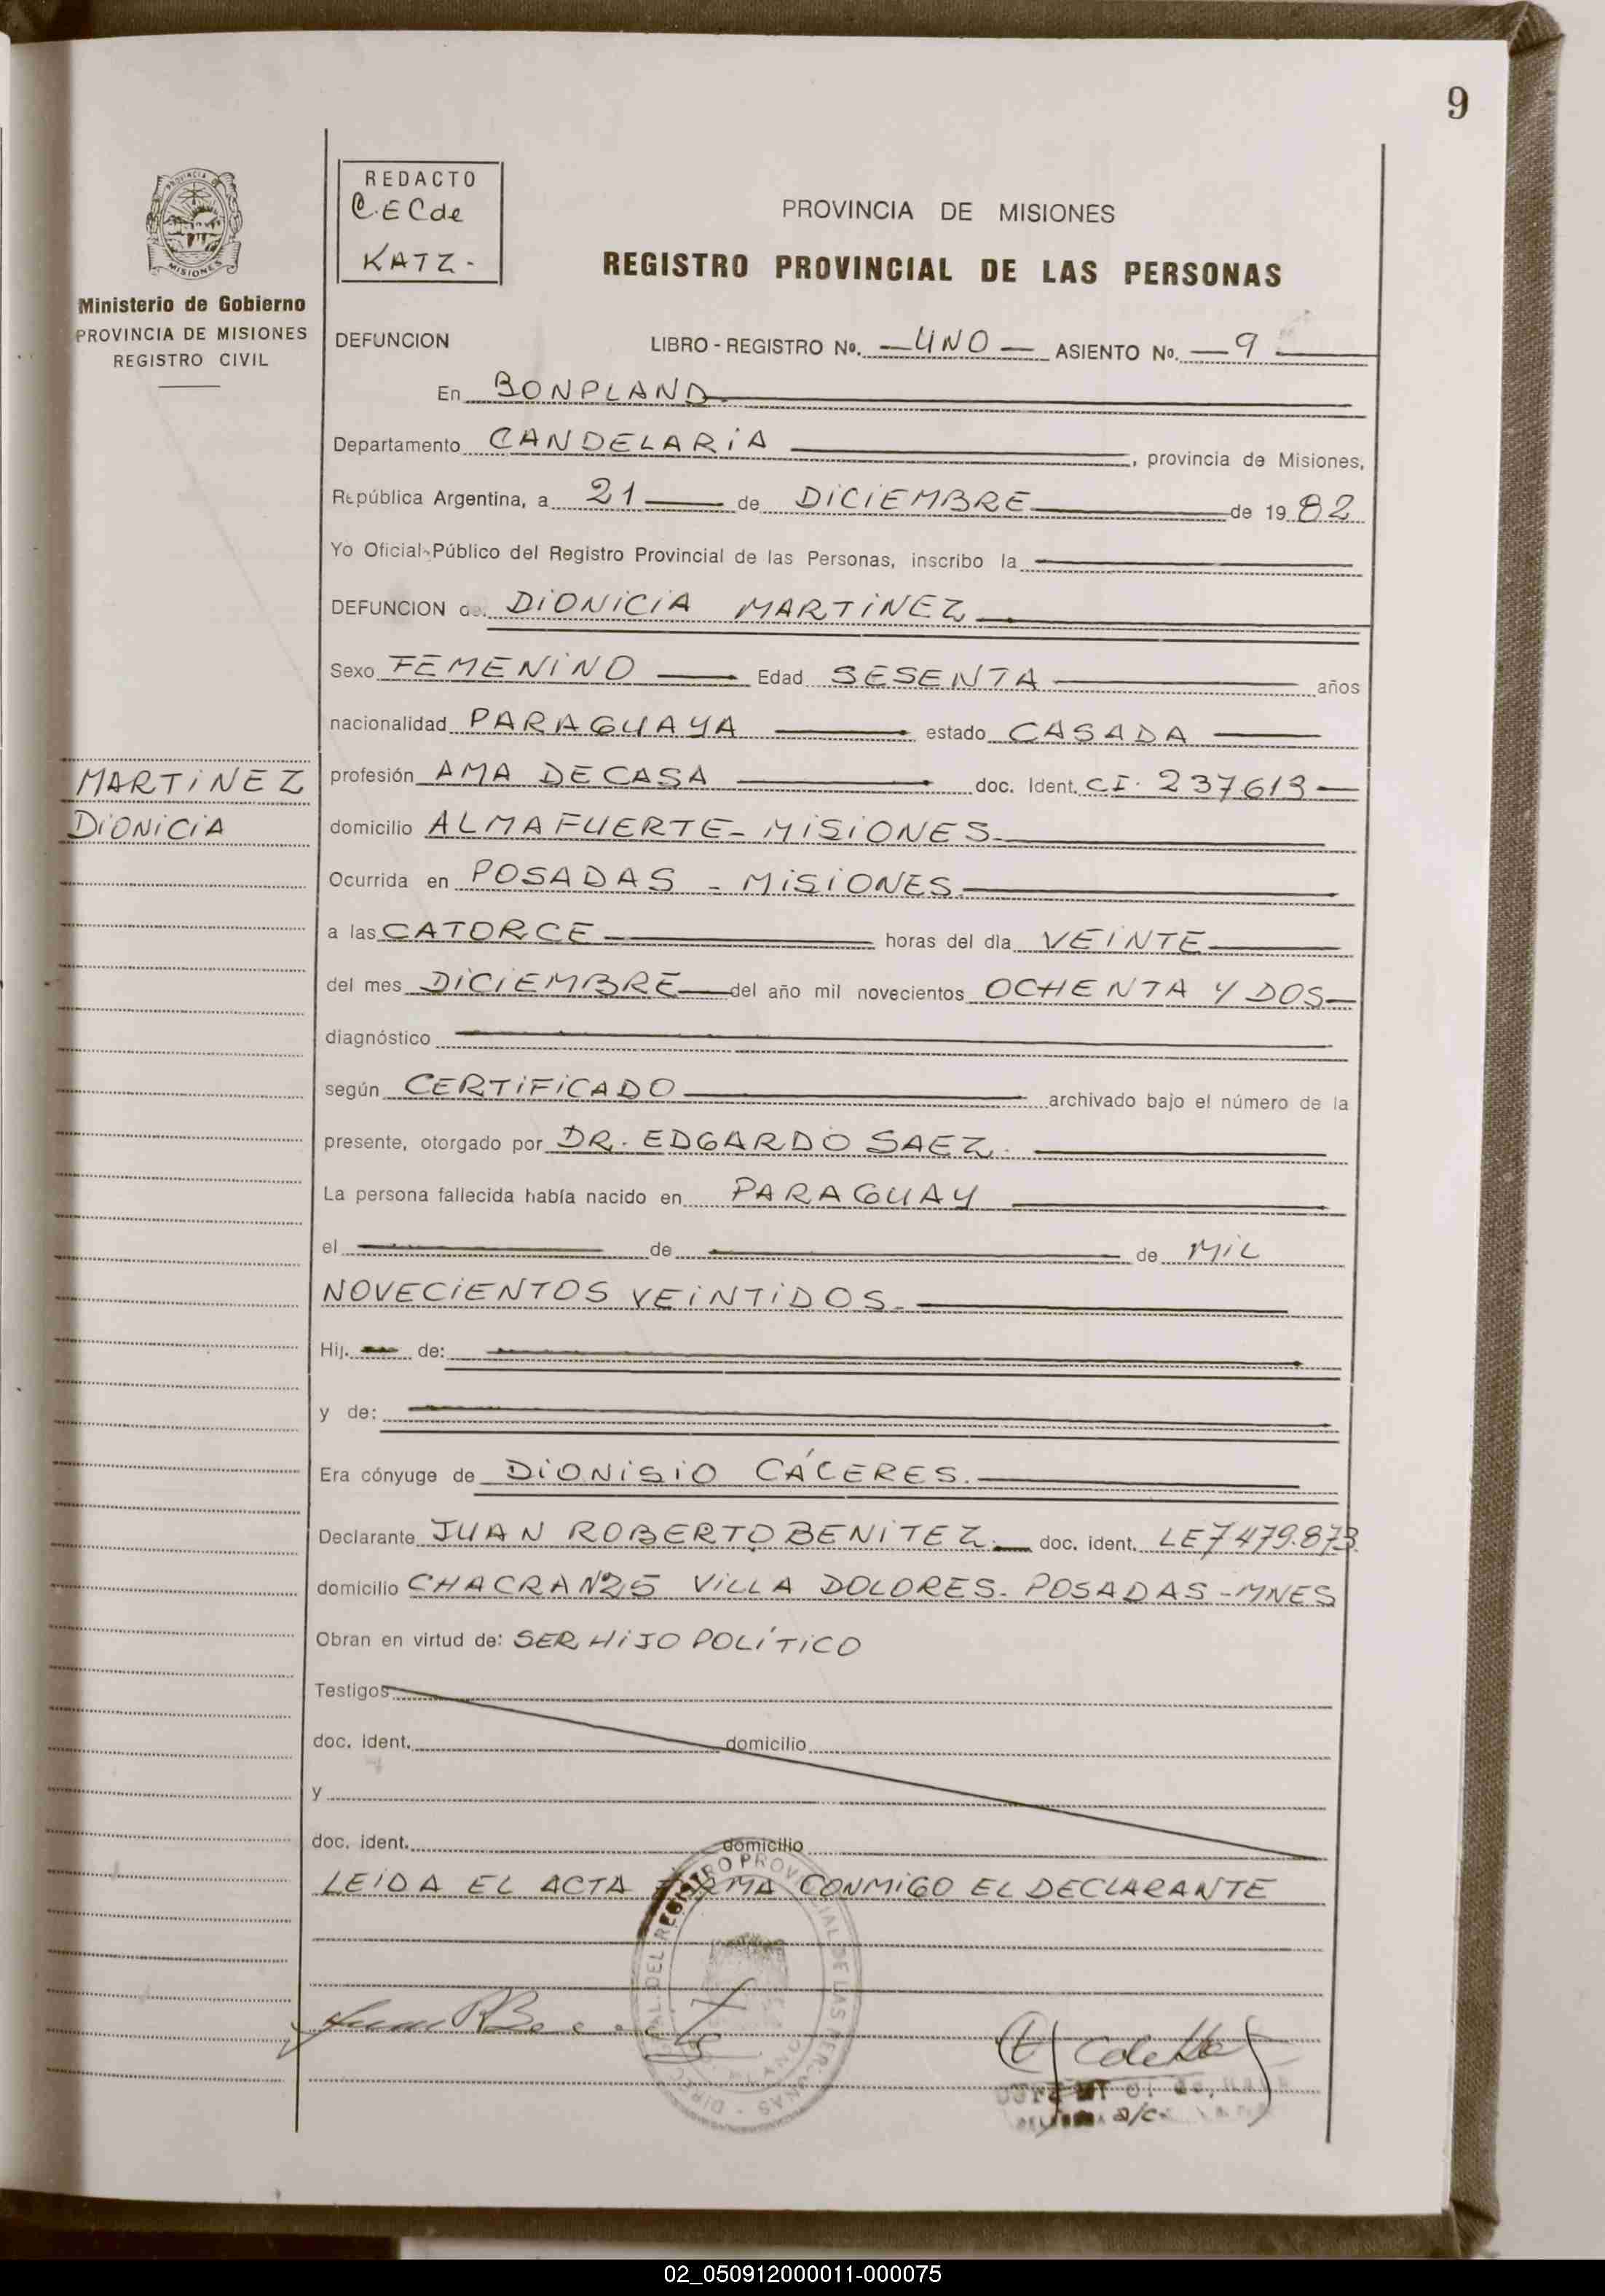 9
REDACTO
C.E C de
KATZ-
PROVINCIA DE MISIONES
REGISTRO PROVINCIAL DE LAS PERSONAS
PROVINCIA DE
MISIONES
Ministerio de Gobierno
PROVINCIA DE MISIONES
REGISTRO CIVIL
DEFUNCION LIBRO - REGISTRO Nº. UNO ASIENTO Nº. 9
En BONPLAND
Departamento CANDELARIA, provincia de Misiones,
República Argentina, a 21 de DICIEMBRE de 19 82
Yo Oficial Público del Registro Provincial de las Personas, inscribo la
DEFUNCION de. DIONICIA MARTINEZ
Sexo FEMENINO Edad SESENTA años
nacionalidad PARAGUAYA estado CASADA
MARTINEZ
DIONICIA
profesión AMA DE CASA doc. Ident. CI. 237613
domicilio ALMAFUERTE - MISIONES
Ocurrida en POSADAS - MISIONES
a las CATORCE horas del día VEINTE
del mes DICIEMBRE del año mil novecientos OCHENTA Y DOS
diagnóstico
según CERTIFICADO archivado bajo el número de la
presente, otorgado por DR. EDGARDO SAEZ.
La persona fallecida había nacido en PARAGUAY
el de de MIL
NOVECIENTOS VEINTIDOS
Hij. de:
y de:
Era cónyuge de DIONISIO CÁCERES.
Declarante JUAN ROBERTO BENITEZ. doc. ident. LE 7479.873
domicilio CHACRA Nº 25 VILLA DOLORES - POSADAS - MNES
Obran en virtud de: SER HIJO POLÍTICO
Testigos
doc. ident. domicilio
y
doc. ident. domicilio
LEIDA EL ACTA FIRMA CONMIGO EL DECLARANTE
REGISTRO PROVINCIAL DE LAS PERSONAS
a/c.
02_050912000011-000075